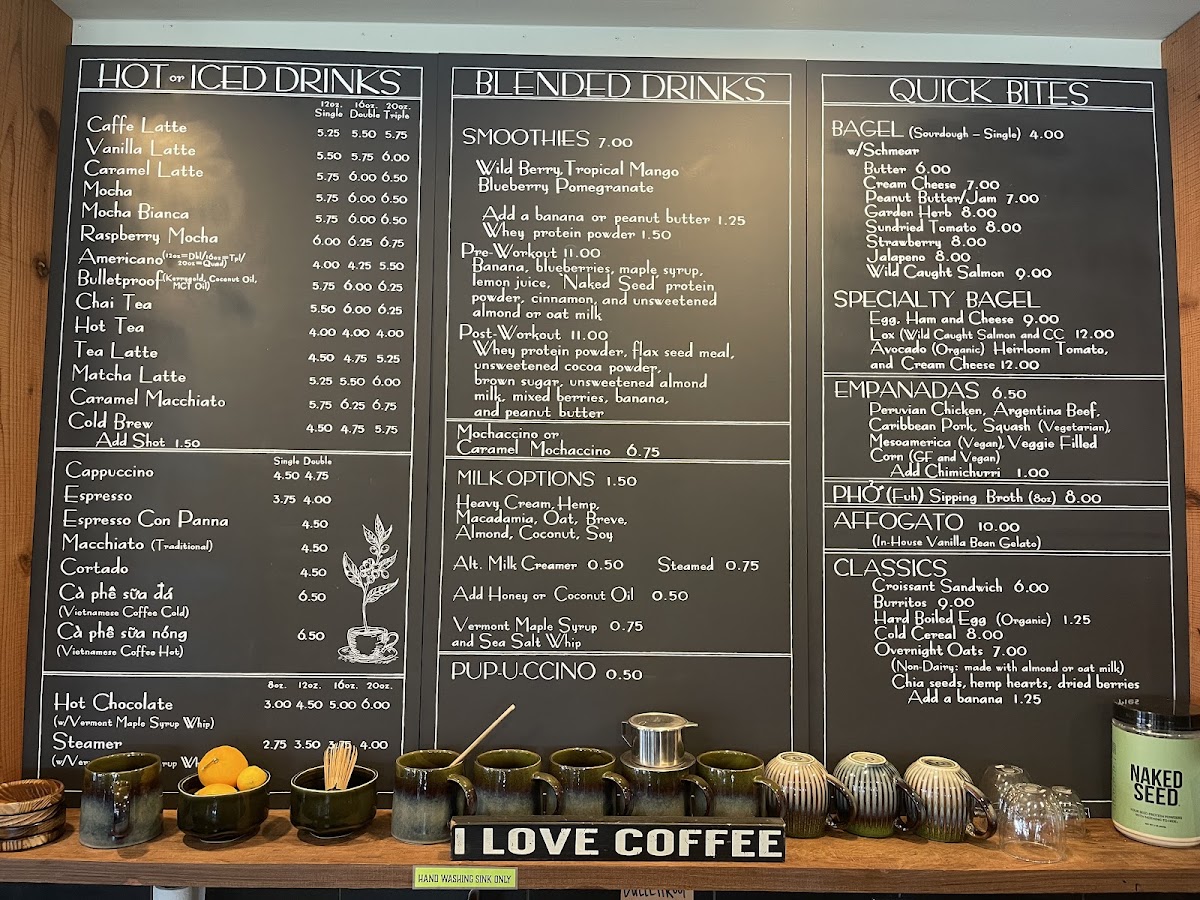 HOT or ICED DRINKS
12oz. 16oz. 20oz.
Single Double Triple
Caffe Latte 5.25 5.50 5.75
Vanilla Latte 5.50 5.75 6.00
Caramel Latte 5.75 6.00 6.50
Mocha 5.75 6.00 6.50
Mocha Bianca 5.75 6.00 6.50
Raspberry Mocha 6.00 6.25 6.75
Americano (12oz=Dbl/16oz=Tpl/
20oz=Quad) 4.00 4.25 5.50
Bulletproof (Kerrygold, Coconut Oil,
MCT Oil) 5.75 6.00 6.25
Chai Tea 5.50 6.00 6.25
Hot Tea 4.00 4.00 4.00
Tea Latte 4.50 4.75 5.25
Matcha Latte 5.25 5.50 6.00
Caramel Macchiato 5.75 6.25 6.75
Cold Brew 4.50 4.75 5.75
Add Shot 1.50
Single Double
Cappuccino 4.50 4.75
Espresso 3.75 4.00
Espresso Con Panna 4.50
Macchiato (Traditional) 4.50
Cortado 4.50
Cà phê sữa đá 6.50
(Vietnamese Coffee Cold)
Cà phê sữa nóng 6.50
(Vietnamese Coffee Hot)
8oz. 12oz. 16oz. 20oz.
Hot Chocolate 3.00 4.50 5.00 6.00
(w/Vermont Maple Syrup Whip)
Steamer 2.75 3.50 3.75 4.00
BLENDED DRINKS
SMOOTHIES 7.00
Wild Berry, Tropical Mango
Blueberry Pomegranate
Add a banana or peanut butter 1.25
Whey protein powder 1.50
Pre-Workout 11.00
Banana, blueberries, maple syrup,
lemon juice, "Naked Seed" protein
powder, cinnamon, and unsweetened
almond or oat milk
Post-Workout 11.00
Whey protein powder, flax seed meal,
unsweetened cocoa powder,
brown sugar, unsweetened almond
milk, mixed berries, banana,
and peanut butter
Mochaccino or
Caramel Mochaccino 6.75
MILK OPTIONS 1.50
Heavy Cream, Hemp,
Macadamia, Oat, Breve,
Almond, Coconut, Soy
Alt. Milk Creamer 0.50 Steamed 0.75
Add Honey or Coconut Oil 0.50
Vermont Maple Syrup 0.75
and Sea Salt Whip
PUP-U-CCINO 0.50
QUICK BITES
BAGEL (Sourdough - Single) 4.00
w/Schmear
Butter 6.00
Cream Cheese 7.00
Peanut Butter/Jam 7.00
Garden Herb 8.00
Sundried Tomato 8.00
Strawberry 8.00
Jalapeno 8.00
Wild Caught Salmon 9.00
SPECIALTY BAGEL
Egg, Ham and Cheese 9.00
Lox (Wild Caught Salmon and CC 12.00
Avocado (Organic) Heirloom Tomato,
and Cream Cheese 12.00
EMPANADAS 6.50
Peruvian Chicken, Argentina Beef,
Caribbean Pork, Squash (Vegetarian),
Mesoamerica (Vegan), Veggie Filled
Corn (GF and Vegan)
Add Chimichurri 1.00
PHỞ (Fuh) Sipping Broth (8oz) 8.00
AFFOGATO 10.00
(In-House Vanilla Bean Gelato)
CLASSICS
Croissant Sandwich 6.00
Burritos 9.00
Hard Boiled Egg (Organic) 1.25
Cold Cereal 8.00
Overnight Oats 7.00
(Non-Dairy: made with almond or oat milk)
Chia seeds, hemp hearts, dried berries
Add a banana 1.25
NAKED
SEED
I LOVE COFFEE
HAND WASHING SINK ONLY